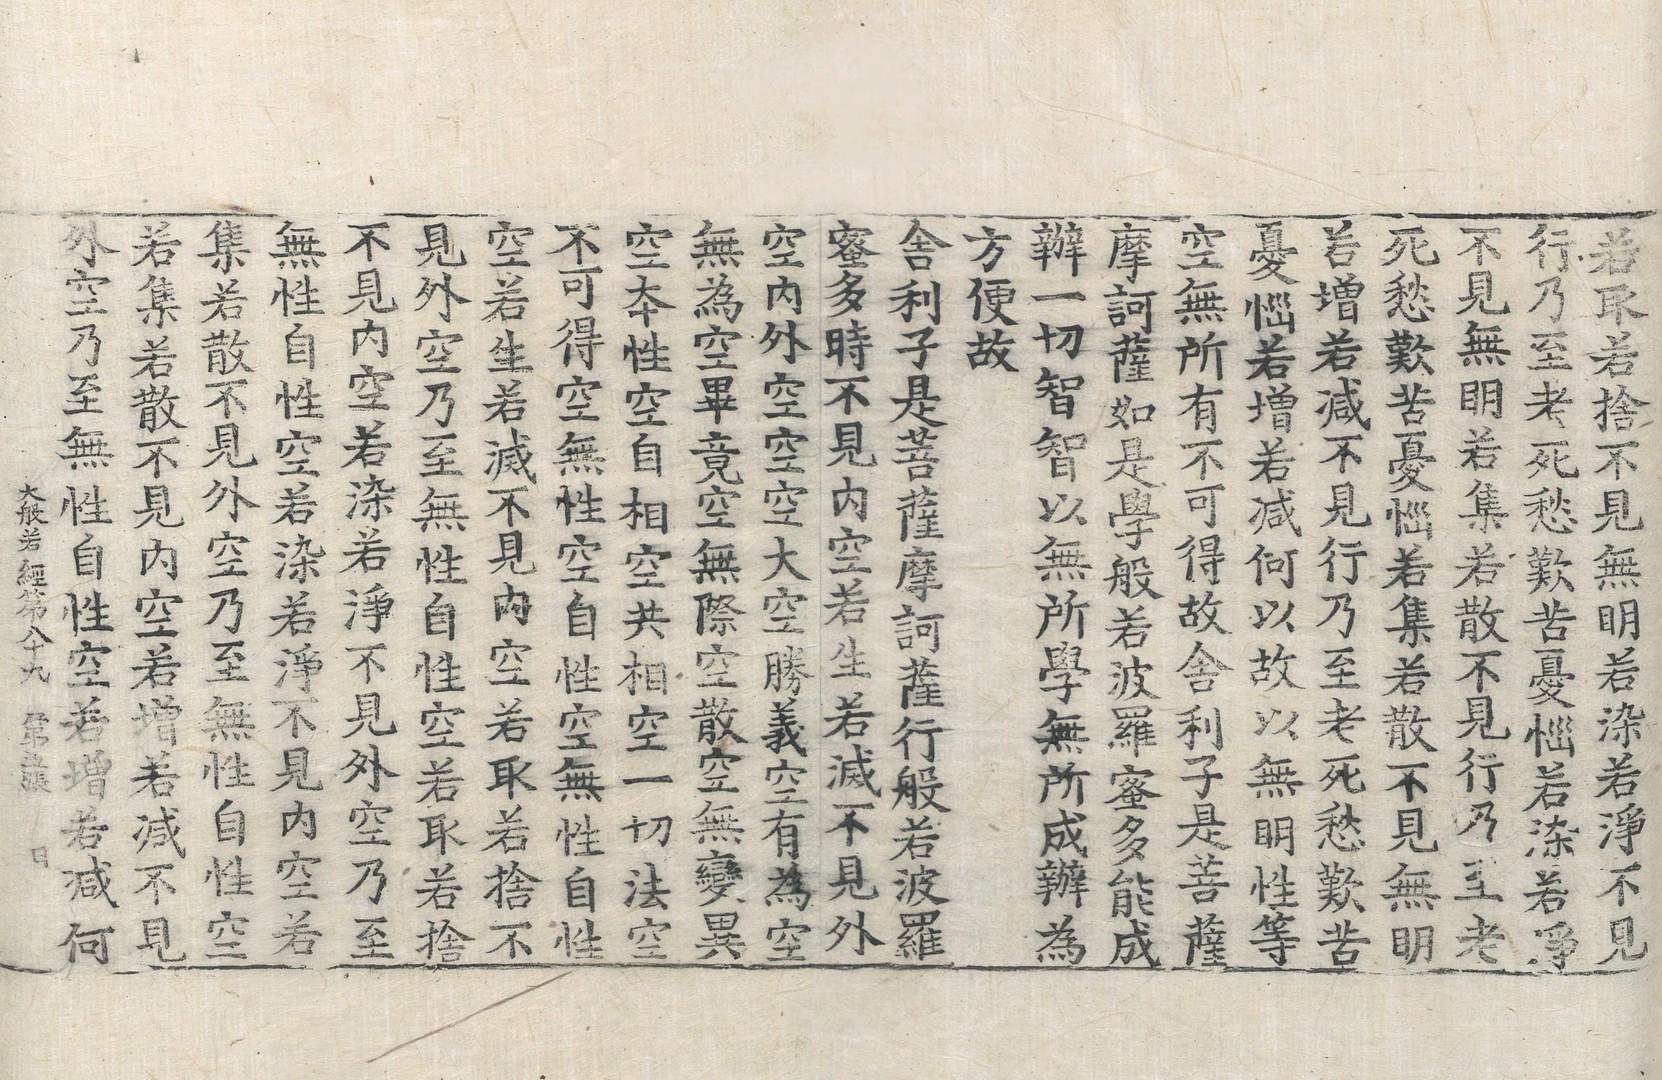 若取若捨不見無明若染若淨不見
行乃至老死愁歎苦憂惱若染若淨
不見無明若集若散不見行乃至老
死愁歎苦憂惱若集若散不見無明
若增若減不見行乃至老死愁歎苦
憂惱若增若減何以故以無明性等
空無所有不可得故舍利子是菩薩
摩訶薩如是學般若波羅蜜多能成
辦一切智智以無所學無所成辦為
方便故
舍利子是菩薩摩訶薩行般若波羅
蜜多時不見內空若生若滅不見外
空內外空空空大空勝義空有為空
無為空畢竟空無際空散空無變異
空本性空自相空共相空一切法空
不可得空無性空自性空無性自性
空若生若滅不見內空若取若捨不
見外空乃至無性自性空若取若捨
不見內空若染若淨不見外空乃至
無性自性空若染若淨不見內空若
集若散不見外空乃至無性自性空
若集若散不見內空若增若減不見
外空乃至無性自性空若增若減何
大般若經第八十九 第 張 日